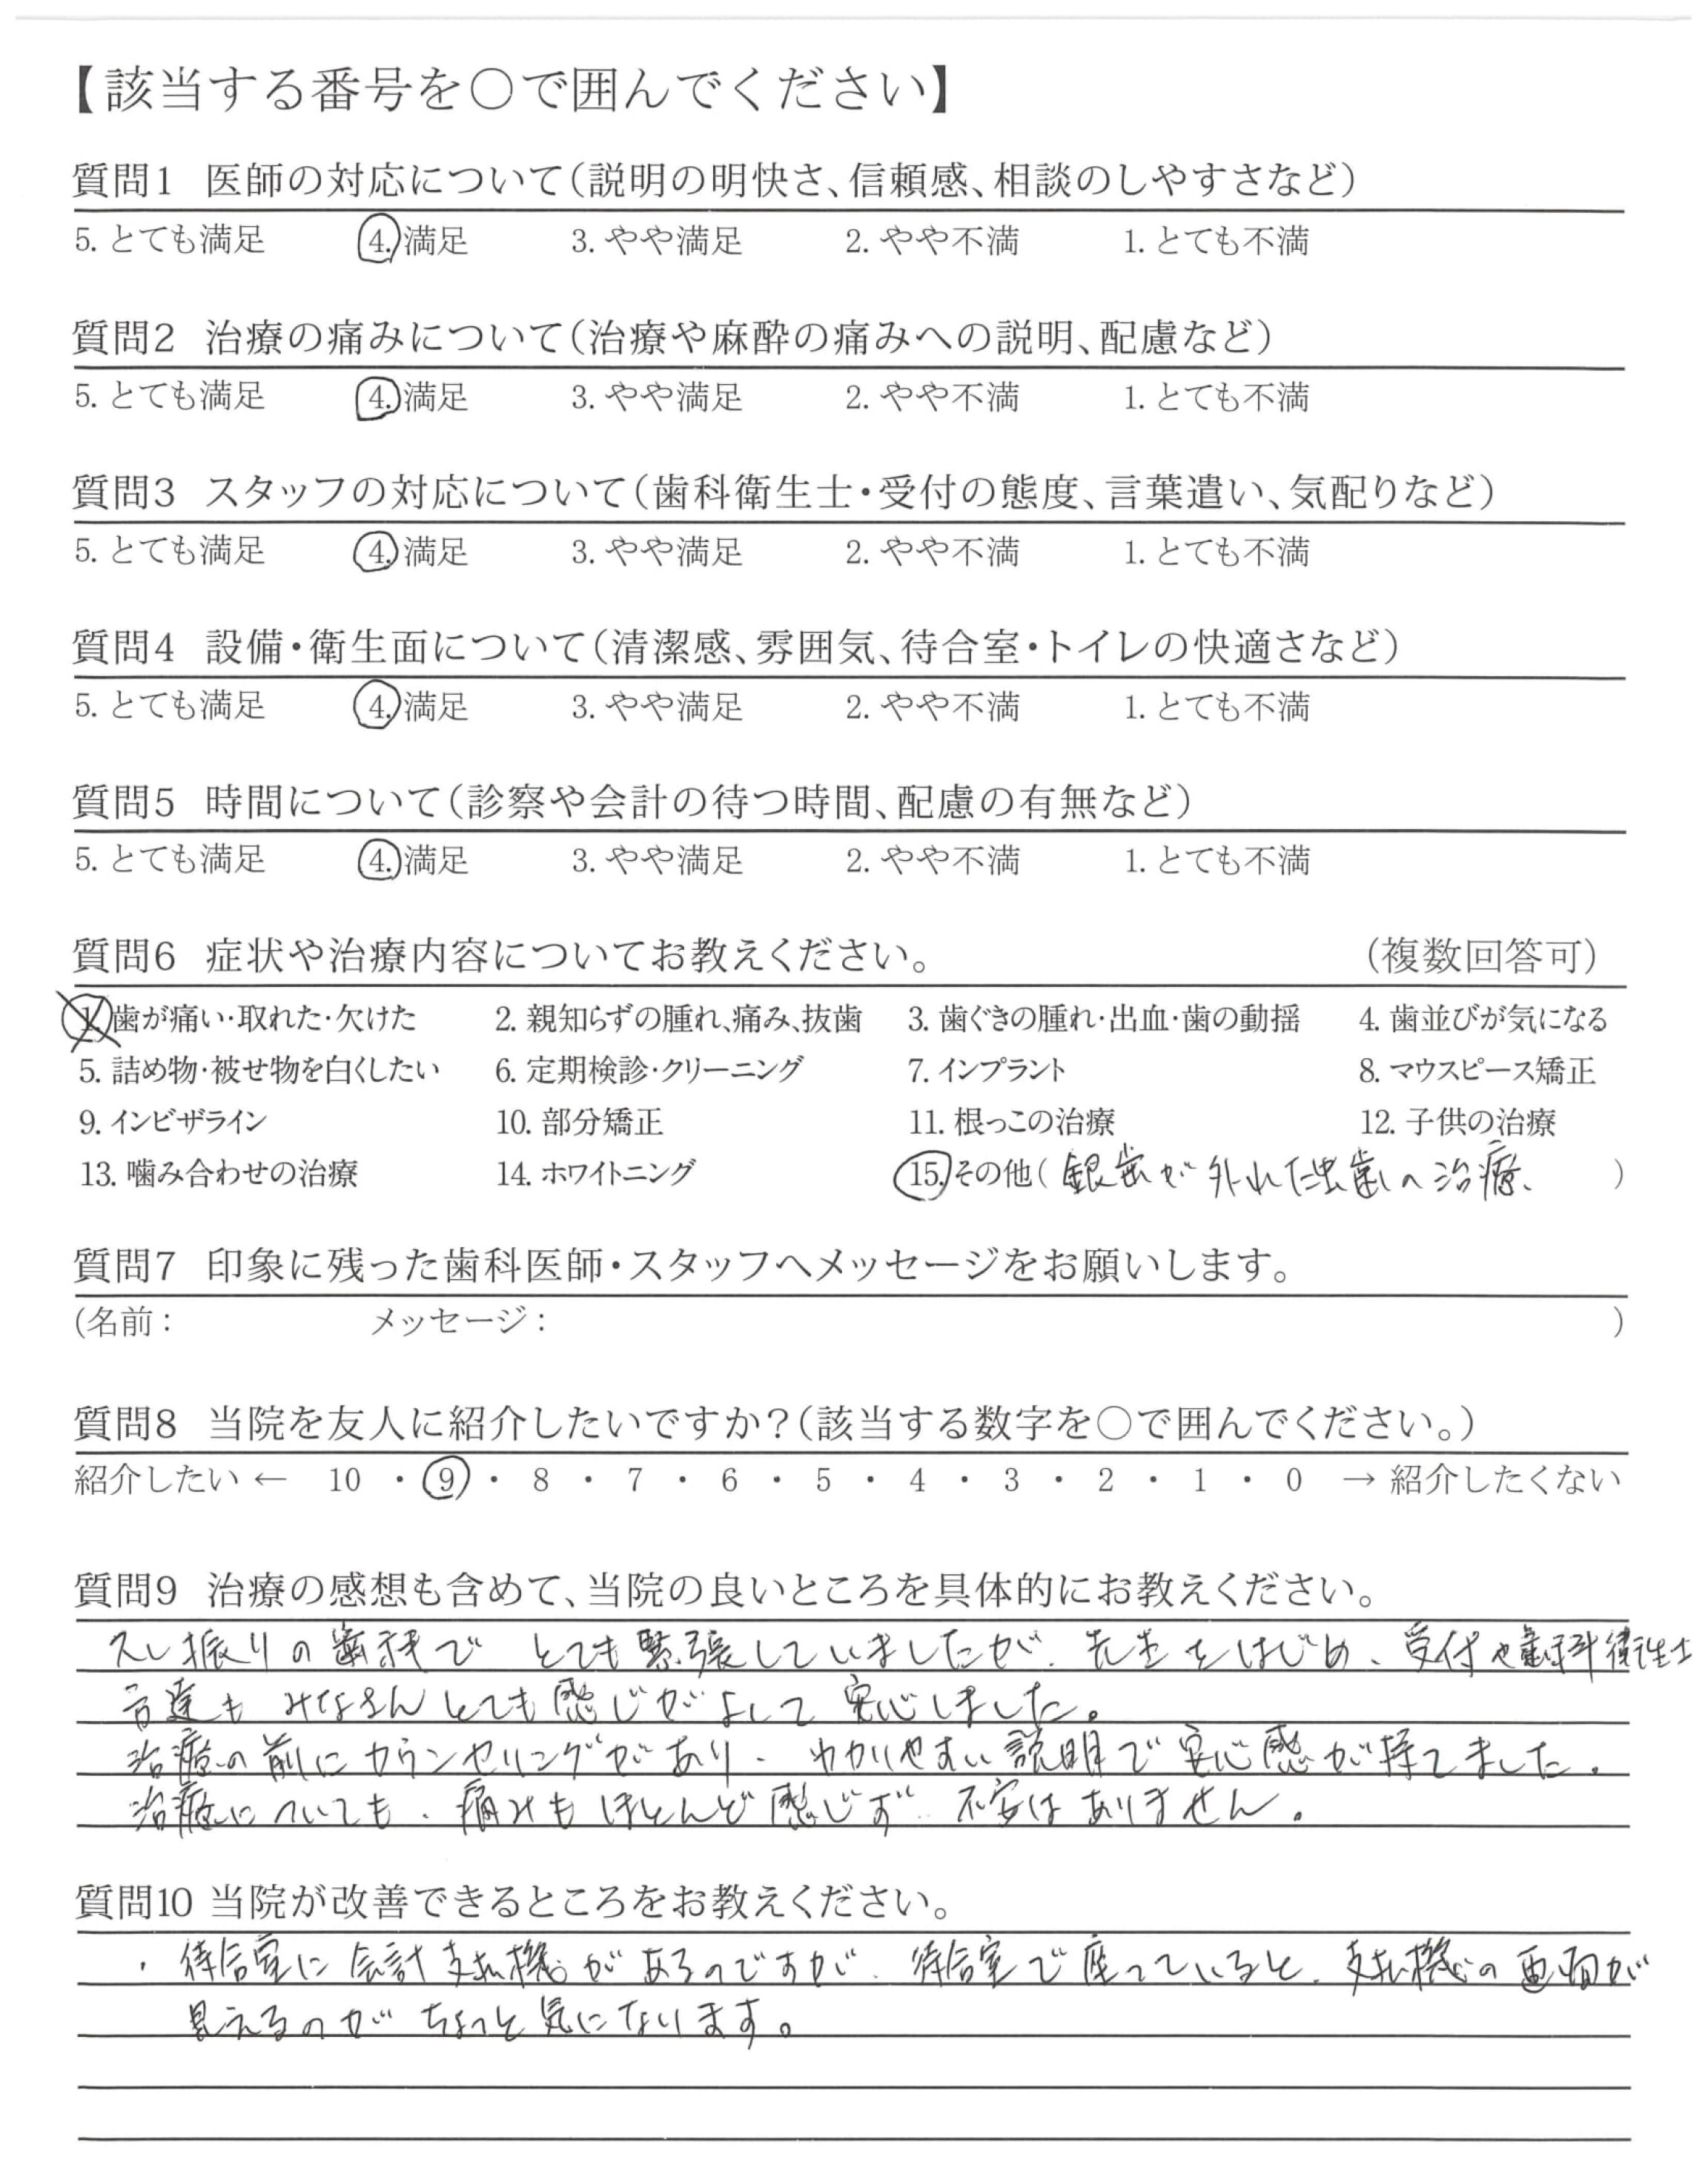 【該当する番号を○で囲んでください】
質問1 医師の対応について(説明の明快さ、信頼感、相談のしやすさなど)
5. とても満足 4. 満足 3. やや満足 2. やや不満 1. とても不満
質問2 治療の痛みについて(治療や麻酔の痛みへの説明、配慮など)
5. とても満足 4. 満足 3. やや満足 2. やや不満 1. とても不満
質問3 スタッフの対応について(歯科衛生士・受付の態度、言葉遣い、気配りなど)
5. とても満足 4. 満足 3. やや満足 2. やや不満 1. とても不満
質問4 設備・衛生面について(清潔感、雰囲気、待合室・トイレの快適さなど)
5. とても満足 4. 満足 3. やや満足 2. やや不満 1. とても不満
質問5 時間について(診察や会計の待つ時間、配慮の有無など)
5. とても満足 4. 満足 3. やや満足 2. やや不満 1. とても不満
質問6 症状や治療内容についてお教えください。 (複数回答可)
1. 歯が痛い・取れた・欠けた 2. 親知らずの腫れ、痛み、抜歯 3. 歯ぐきの腫れ・出血・歯の動揺 4. 歯並びが気になる
5. 詰め物・被せ物を白くしたい 6. 定期検診・クリーニング 7. インプラント 8. マウスピース矯正
9. インビザライン 10. 部分矯正 11. 根っこの治療 12. 子供の治療
13. 噛み合わせの治療 14. ホワイトニング 15. その他( 銀歯が外れた虫歯の治療、 )
質問7 印象に残った歯科医師・スタッフへメッセージをお願いします。
(名前: メッセージ: )
質問8 当院を友人に紹介したいですか?(該当する数字を○で囲んでください。)
紹介したい ← 10 ・ 9 ・ 8 ・ 7 ・ 6 ・ 5 ・ 4 ・ 3 ・ 2 ・ 1 ・ 0 → 紹介したくない
質問9 治療の感想も含めて、当院の良いところを具体的にお教えください。
久し振りの歯科で とても緊張していましたが、先生をはじめ、受付や歯科衛生士
の方達も みなさんとても感じがよくて 安心しました。
治療の前にカウンセリングがあり、わかりやすい説明で安心感が持てました。
治療についても、痛みもほとんど感じず 不安はありません。
質問10 当院が改善できるところをお教えください。
・待合室に会計支払機があるのですが、待合室で座っていると、支払機の画面が
見えるのがちょっと気になります。